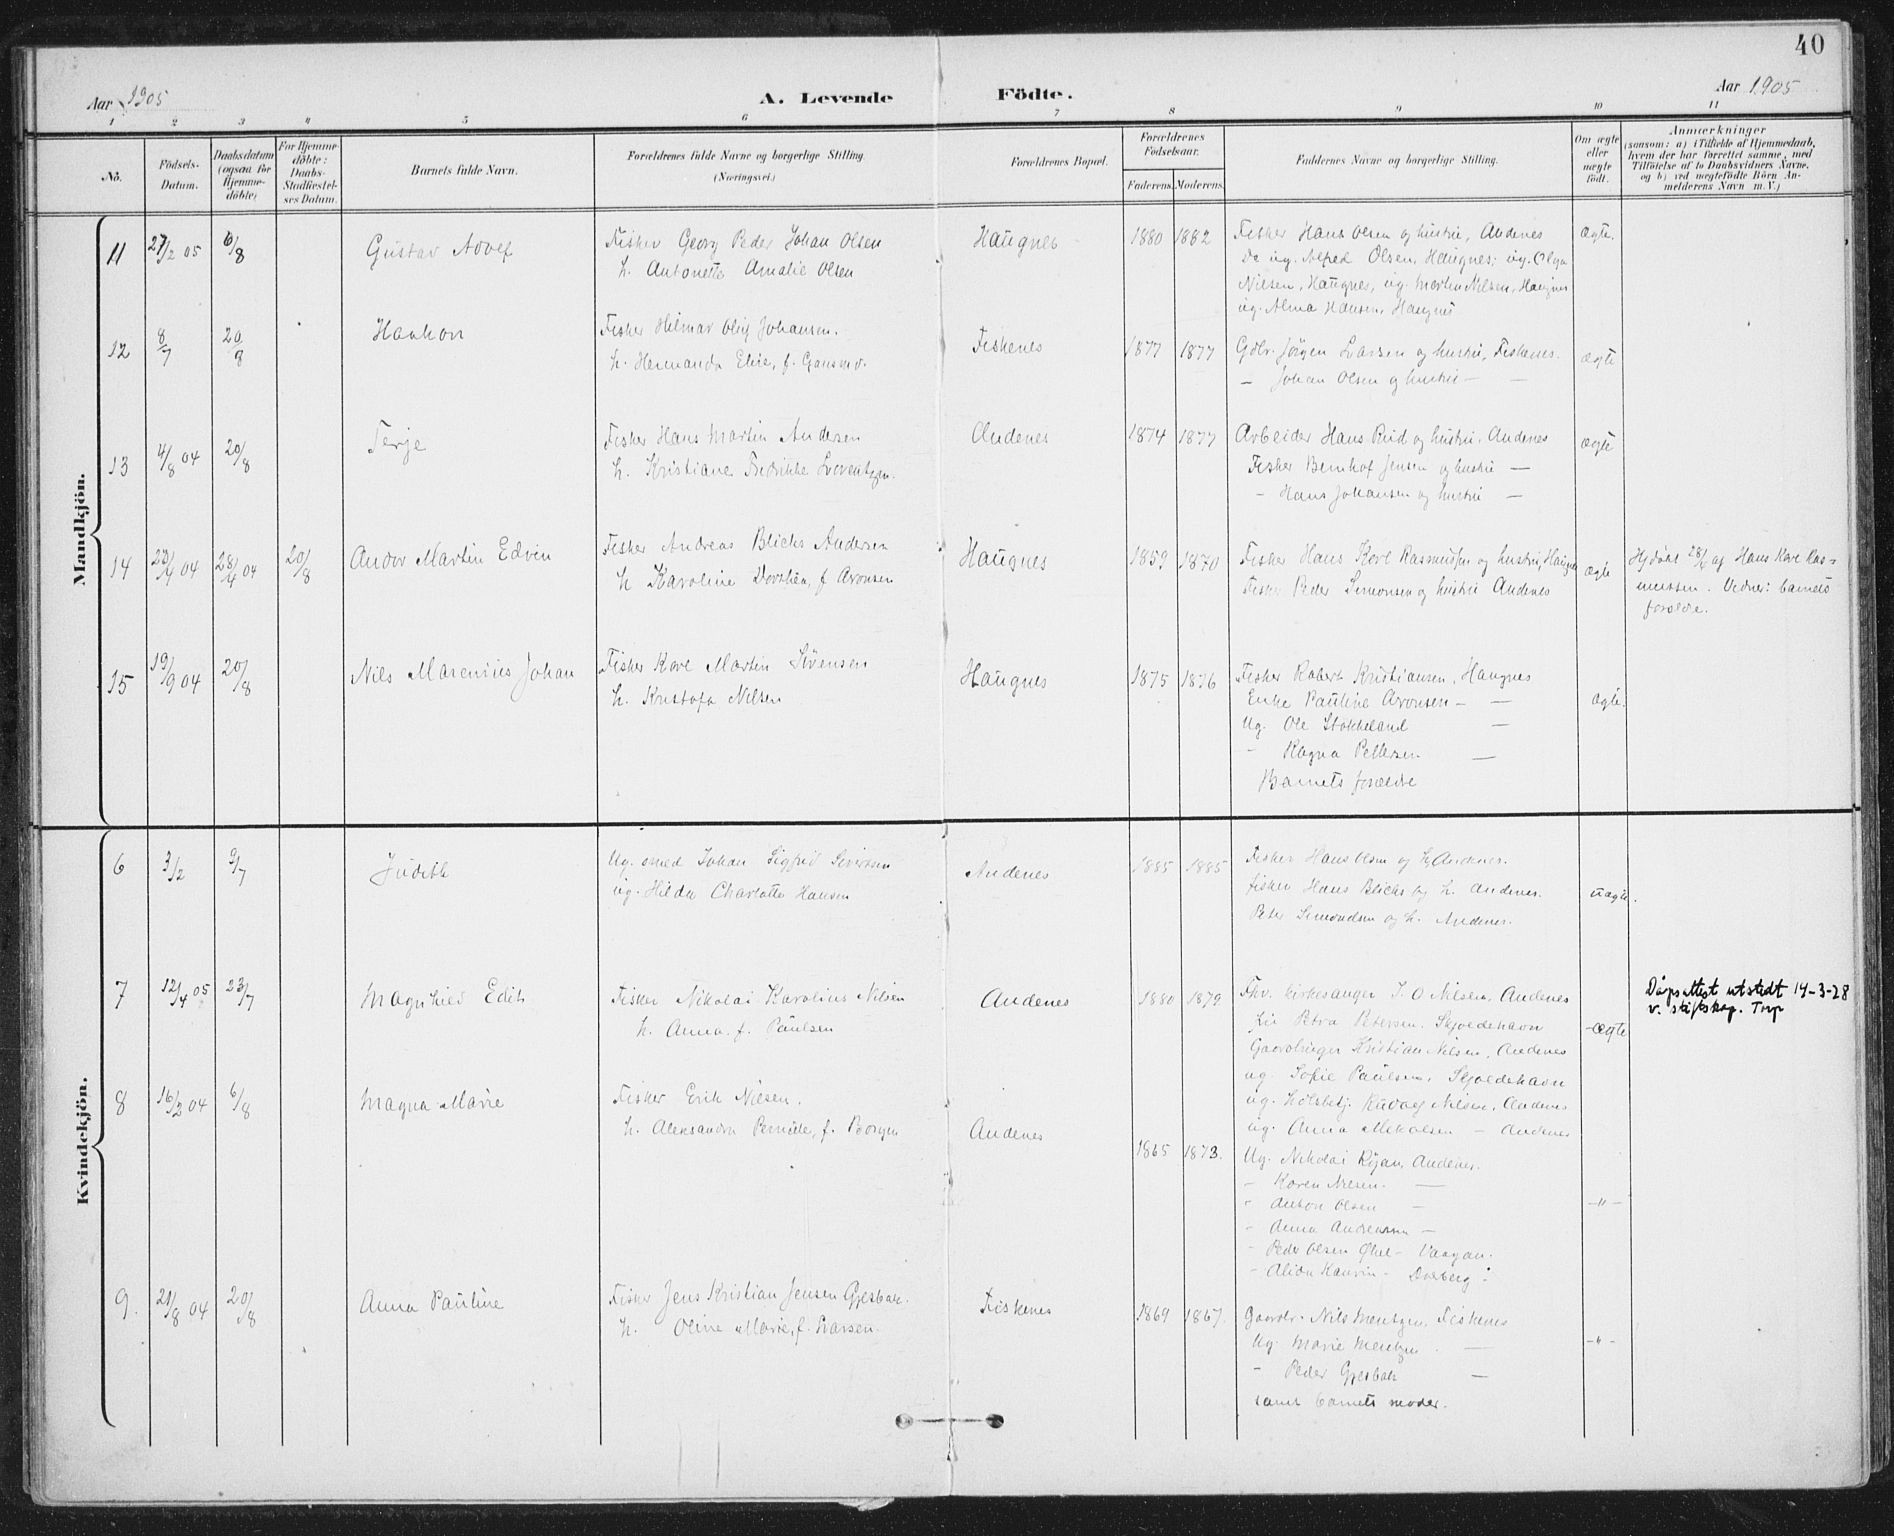 40
Aar 1905
A. Levende Födte.
Aar 1905
1 2 3 4 5 6 7 8 9 10 11
No.
Födsels-Datum.
Daabsdatum (ogsaa for Hjemmedöbte)
For Hjemmedöbte: Daabs-Stadfæstelses Datum.
Barnets fulde Navn.
Forældrenes fulde Navne og borgerlige Stilling.
(Næringsvei.)
Forældrenes Bopæl.
Forældrenes Födselsaar.
Faderens. Moderens.
Faddernes Navne og borgerlige Stilling.
Om ægte eller uægte födt.
Anmærkninger
(saasom: a) i Tilfælde af Hjemmedaab,
hvem der har forrettet samme, med
Tilföielse af to Daabsvidners Navne,
og b) ved uegtefödte Börn An-
melderens Navn m. V.)
Mandkjön.
11 27/2 05 6/8 Gustav Adolf Fisker Georg Peder Johan Olsen Haugnes 1880 1882 Fisker Hans Olsen og hustru, Andenes ægte.
h. Antonette Amalie Olsen
Do ug. Alfred Olsen, Haugnes; ug. Olga
Nilsen, Haugnes, ug. Martin Nilsen, Haugnes
ug. Alma Hansen, Haugnes
12 8/7 20/8 Haakon Fisker Hilmar Oluf Johansen. Fiskenes 1877 1877 Gdbr. Jörgen Larsen og hustru, Fiskenes. ægte
h. Hermanda Elise, f.
— Johan Olsen og hustru — —
13 4/8 04 20/8 Terje Fisker Hans Martin Andersen Andenes 1874 1877 Arbeider Hans Rud og hustru, Andenes ægte
h. Kristiane Fredrikke
Fisker Bernhof Jensen og hustru —
- Hans Johansen og hustru —
14 04 28/4 04 20/8 Andor Martin Edvin Fisker Andreas Blichs Andersen Haugnes 1859 1870 Fisker Hans Kore Rasmussen og hustru, Haugnes ægte Hjdöbt 28/4 af Hans Kore Ras-
h. Karoline Dorthea, f. Aronsen
Fisker Peder Simonsen og hustru Andenes
mussen. Vidner: barnets
forældre.
15 19/9 04 20/8 Nils Marenius Johan Fisker Kore Martin Sörensen Haugnes 1875 1876 Fisker Robert Kristiansen, Haugnes ægte.
h. Kristofa Nilsen
Enke Pauline Aronsen — —
Ug. Ole Stokkeland —
- Ragna Pettersen —
Barnets forældre
Kvindekjön.
6 3/2 9/7 Judith Ug. Johan Sigfrid Sivertsen Andenes 1885 1885 Fisker Hans Olsen og h. Andenes. uægte.
ug. Hilda Charlotte Hansen
fisker Hans Blichs og h. Andenes.
Peter Simondsen og h. Andenes.
7 12/4 05 23/7 Magnhild Edith Fisker Nikolai Karolius Nilsen Andenes 1880 1879 Fhv. kirkesanger J. O Nilsen, Andenes ægte Dåpsattest utstedt 14-3-28
v. stiftskap. Torp
h. Anna, f. Paulsen
fru Petra Petersen, Skjoldehavn
Gaardbruger Kristian Nilsen, Andenes
ug. Sofie Paulsen, Skjoldehavn
ug. Ludvig Nilsen, Andenes
ug. Anna — Andenes
8 16/2 04 6/8 Magna Marie Fisker Erik Nilsen. Andenes 1865 1873.
h. Aleksandra Pernille, f.
Ug. Nikolai Andenes.
- Karen Nilsen. —
- Anton Olsen — —"—
- Anna Andreassen —
- Peder Olsen
- Dverberg
9. 21/8 04 20/8 Anna Pauline Fisker Jens Kristian Jensen Gjesbak. Fiskenes 1869 1867. Gaardbr. Nils Mentzen, Fiskenes
h. Oline Marie, f. Larsen.
Ug. Marie Mentzen. — —"—
- Peder Gjesbak —
samt barnets moder.